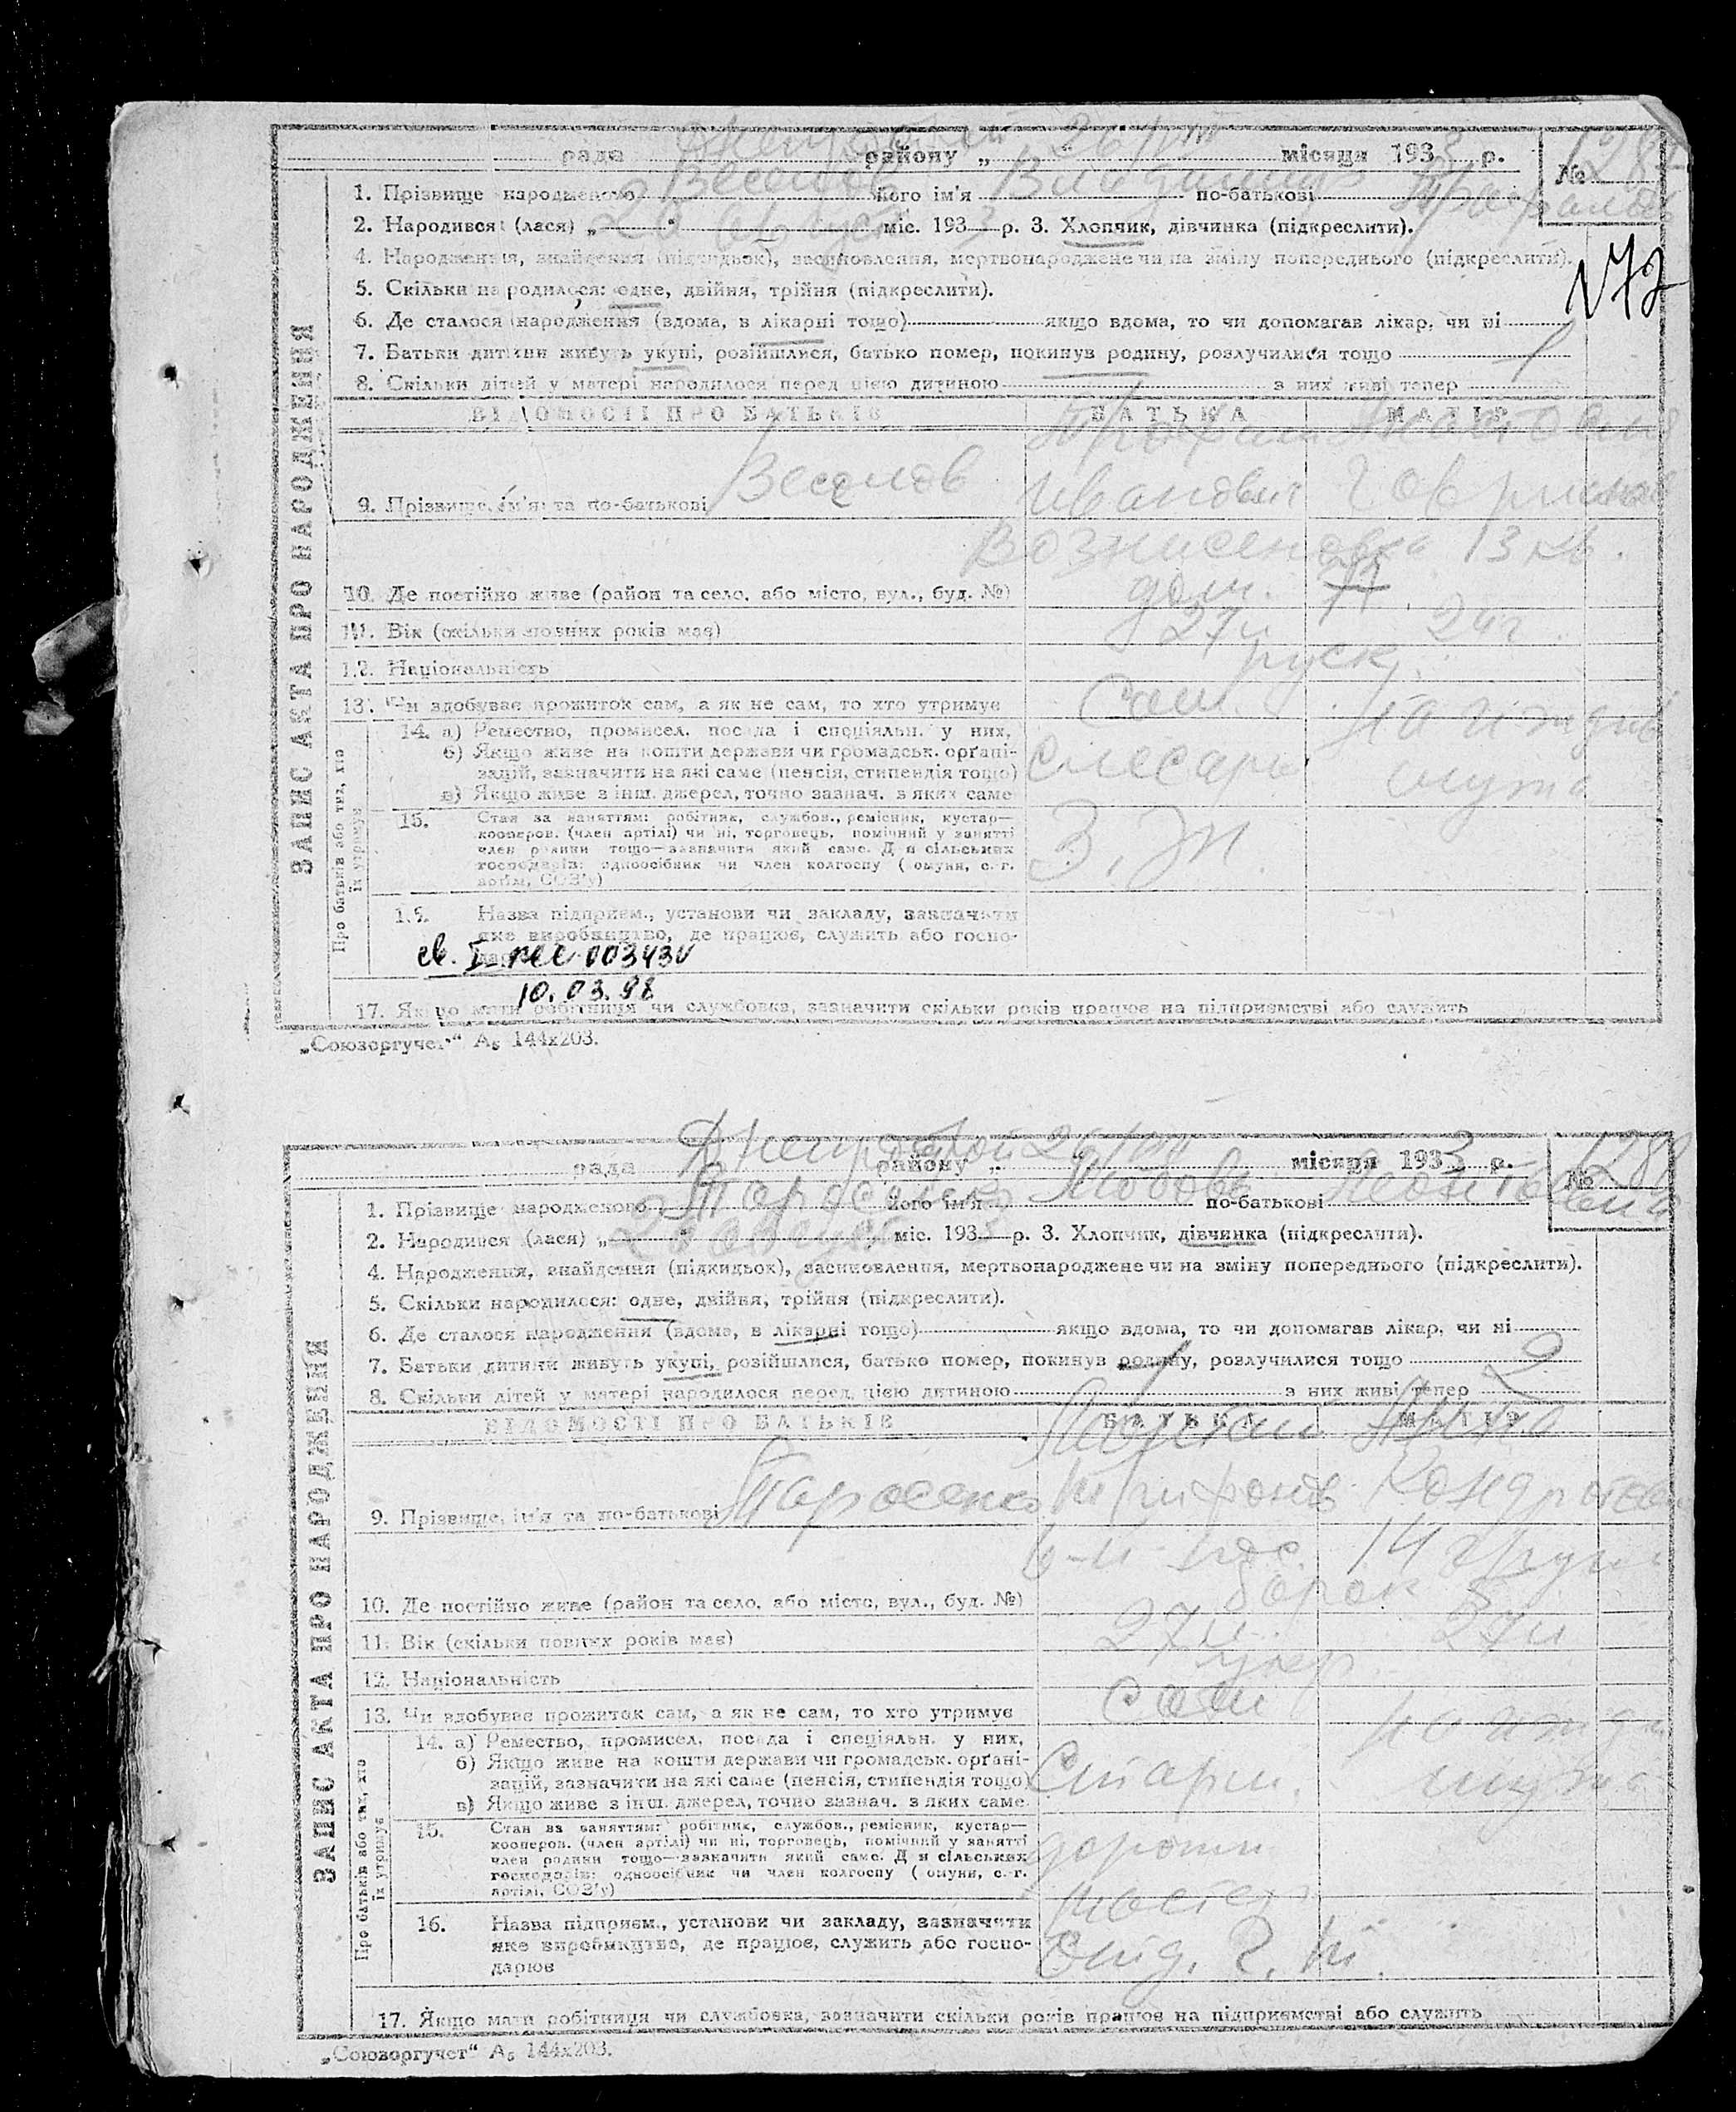 рада району „ 26/VIII " місяця 1933 р. № 1287
1. Прізвище народженого Веселов його ім'я Владимир по-батькові
2. Народився (лася) „ 20 " міс. 1933 р. 3. Хлопчик, дівчинка (підкреслити).
4. Народження, знайдення (підкидьок), засиновлення, мертвонароджене чи на зміну попереднього (підкреслити).
5. Скільки народилося: одне, двійня, трійня (підкреслити).
6. Де сталося народження (вдома, в лікарні тощо) якщо вдома, то чи допомагав лікар, чи ні
7. Батьки дитини живуть укупі, розійшлися, батько помер, покинув родину, розлучилися тощо
8. Скільки дітей у матері народилося перед цією дитиною 1 з них живі тепер 1
ЗАПИС АКТА ПРО НАРОДЖЕННЯ
ВІДОМОСТІ ПРО БАТЬКІВ БАТЬКА МАТІР
9. Прізвище, ім'я та по-батькові Веселов Иванович
13 кв.
10. Де постійно живе (район та село, або місто, вул., буд. №) дом.
11. Вік (скільки повних років має) 27л 24г.
12. Національність руск.
13. Чи здобуває прожиток сам, а як не сам, то хто утримує Сам На иждив
Про батьків або тих, хто їх утримує
14. а) Ремество, промисел, посада і спеціяльн. у них,
б) Якщо живе на кошти держави чи громадськ. орґані-
зацій, зазначити на які саме (пенсія, стипендія тощо) слесарь мужа
в) Якщо живе з інш. джерел, точно зазнач. з яких саме
15. Стан за заняттям: робітник, службов., ремісник, кустар—
кооперов. (член артілі) чи ні, торговець, помічний у занятті
член родини тощо—зазначити який саме. Для сільських
господарів: одноосібник чи член колгоспу (комуни, с.-г.
артіл, СОЗ'у)
16. Назва підприєм., установи чи закладу, зазначити
яке виробництво, де працює, служить або госпо-
дарює
10.03.98
17. Якщо мати робітниця чи службовка, зазначити скільки років працює на підприємстві або служить
„Союзоргучет" А₅ 144х203.
рада Днепрострой району „ 26/VIII " місяця 1933 р. № 1288
1. Прізвище народженого Тарасенко його ім'я Любовь по-батькові
2. Народився (лася) „ 20 " міс. 1933 р. 3. Хлопчик, дівчинка (підкреслити).
4. Народження, знайдення (підкидьок), засиновлення, мертвонароджене чи на зміну попереднього (підкреслити).
5. Скільки народилося: одне, двійня, трійня (підкреслити).
6. Де сталося народження (вдома, в лікарні тощо) якщо вдома, то чи допомагав лікар, чи ні
7. Батьки дитини живуть укупі, розійшлися, батько помер, покинув родину, розлучилися тощо
8. Скільки дітей у матері народилося перед цією дитиною 1 з них живі тепер 2
ЗАПИС АКТА ПРО НАРОДЖЕННЯ
ВІДОМОСТІ ПРО БАТЬКІВ БАТЬКА МАТІР
Анна
9. Прізвище, ім'я та по-батькові Тарасенко
6-й пос. 14
10. Де постійно живе (район та село, або місто, вул., буд. №) барак
11. Вік (скільки повних років має) 27л. 27л
12. Національність укр.
13. Чи здобуває прожиток сам, а як не сам, то хто утримує Сам
Про батьків або тих, хто їх утримує
14. а) Ремество, промисел, посада і спеціяльн. у них,
б) Якщо живе на кошти держави чи громадськ. орґані-
зацій, зазначити на які саме (пенсія, стипендія тощо) Старш. мужа
в) Якщо живе з інш. джерел, точно зазнач. з яких саме
15. Стан за заняттям: робітник, службов., ремісник, кустар—
кооперов. (член артілі) чи ні, торговець, помічний у занятті
член родини тощо—зазначити який саме. Для сільських
господарів: одноосібник чи член колгоспу (комуни, с.-г.
артілі, СОЗ'у)
16. Назва підприєм., установи чи закладу, зазначити
яке виробництво, де працює, служить або госпо-
дарює
17. Якщо мати робітниця чи службовка, зазначити скільки років працює на підприємстві або служить
„Союзоргучет" А₅ 144х203.